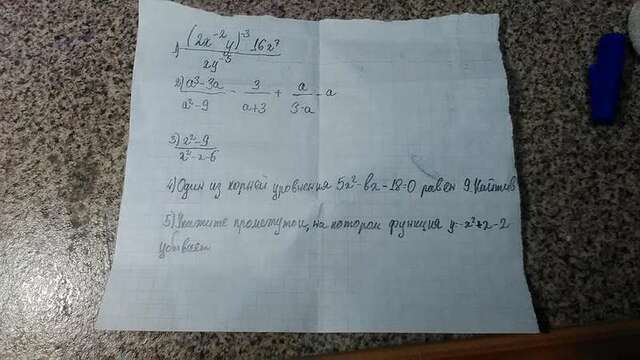 1) ((2x⁻²y)⁻³ 16x⁷)/(xy⁻⁵)
2) (a³-3a)/(a²-9) - 3/(a+3) + a/(3-a) - a
3) (x²-9)/(x²-x-6)
4) Один из корней уровнения 5x²-вx-18=0 равен 9. Найти в
5) Укажите промежуток, на котором функция y=-x²+x-2
убывает